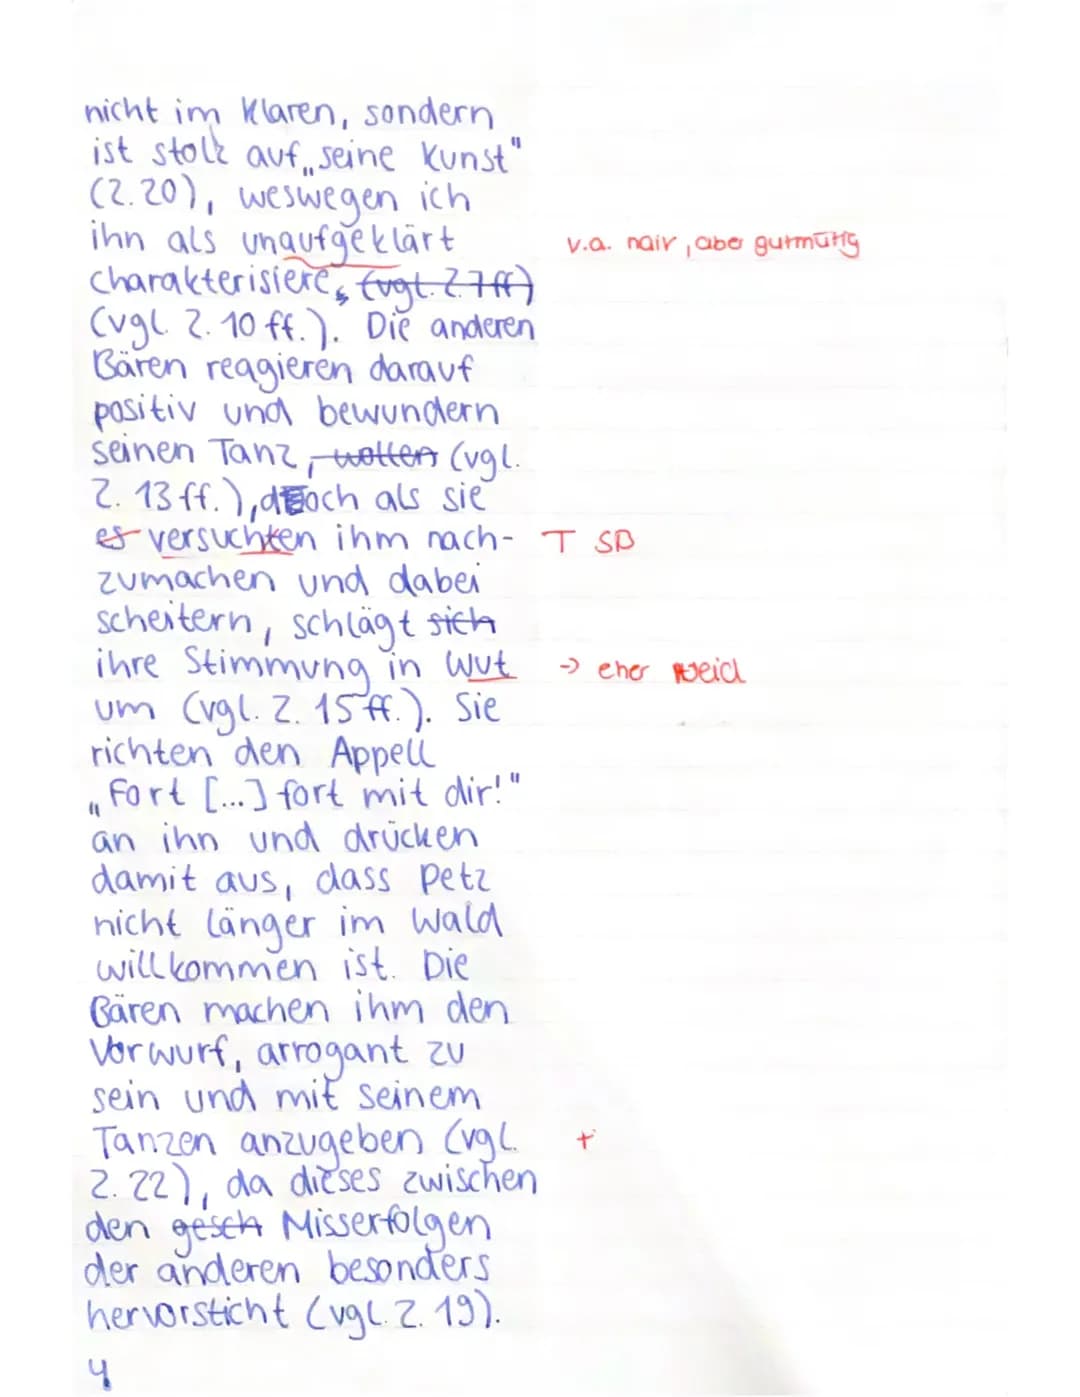 nicht im Klaren, sondern
ist stolz auf „seine Kunst"
(Z. 20), weswegen ich
ihn als unaufgeklärt
v.a. naiv, aber gutmütig
charakterisiere, (vgl. Z. 7 ff)
(vgl. Z. 10 ff.). Die anderen
Bären reagieren darauf
positiv und bewundern
seinen Tanz, wollen (vgl.
Z. 13 ff.), doch als sie
es versuchten ihm nach-
T SB
zumachen und dabei
scheitern, schlägt sich
ihre Stimmung in Wut
-> eher Neid
um (vgl. Z. 15 ff.). Sie
richten den Appell
„Fort [...] fort mit dir!"
an ihn und drücken
damit aus, dass Petz
nicht länger im Wald
willkommen ist. Die
Bären machen ihm den
Vorwurf, arrogant zu
sein und mit seinem
Tanzen anzugeben (vgl.
+
Z. 22), da dieses zwischen
den gesch Misserfolgen
der anderen besonders
hervorsticht (vgl. Z. 19).
4